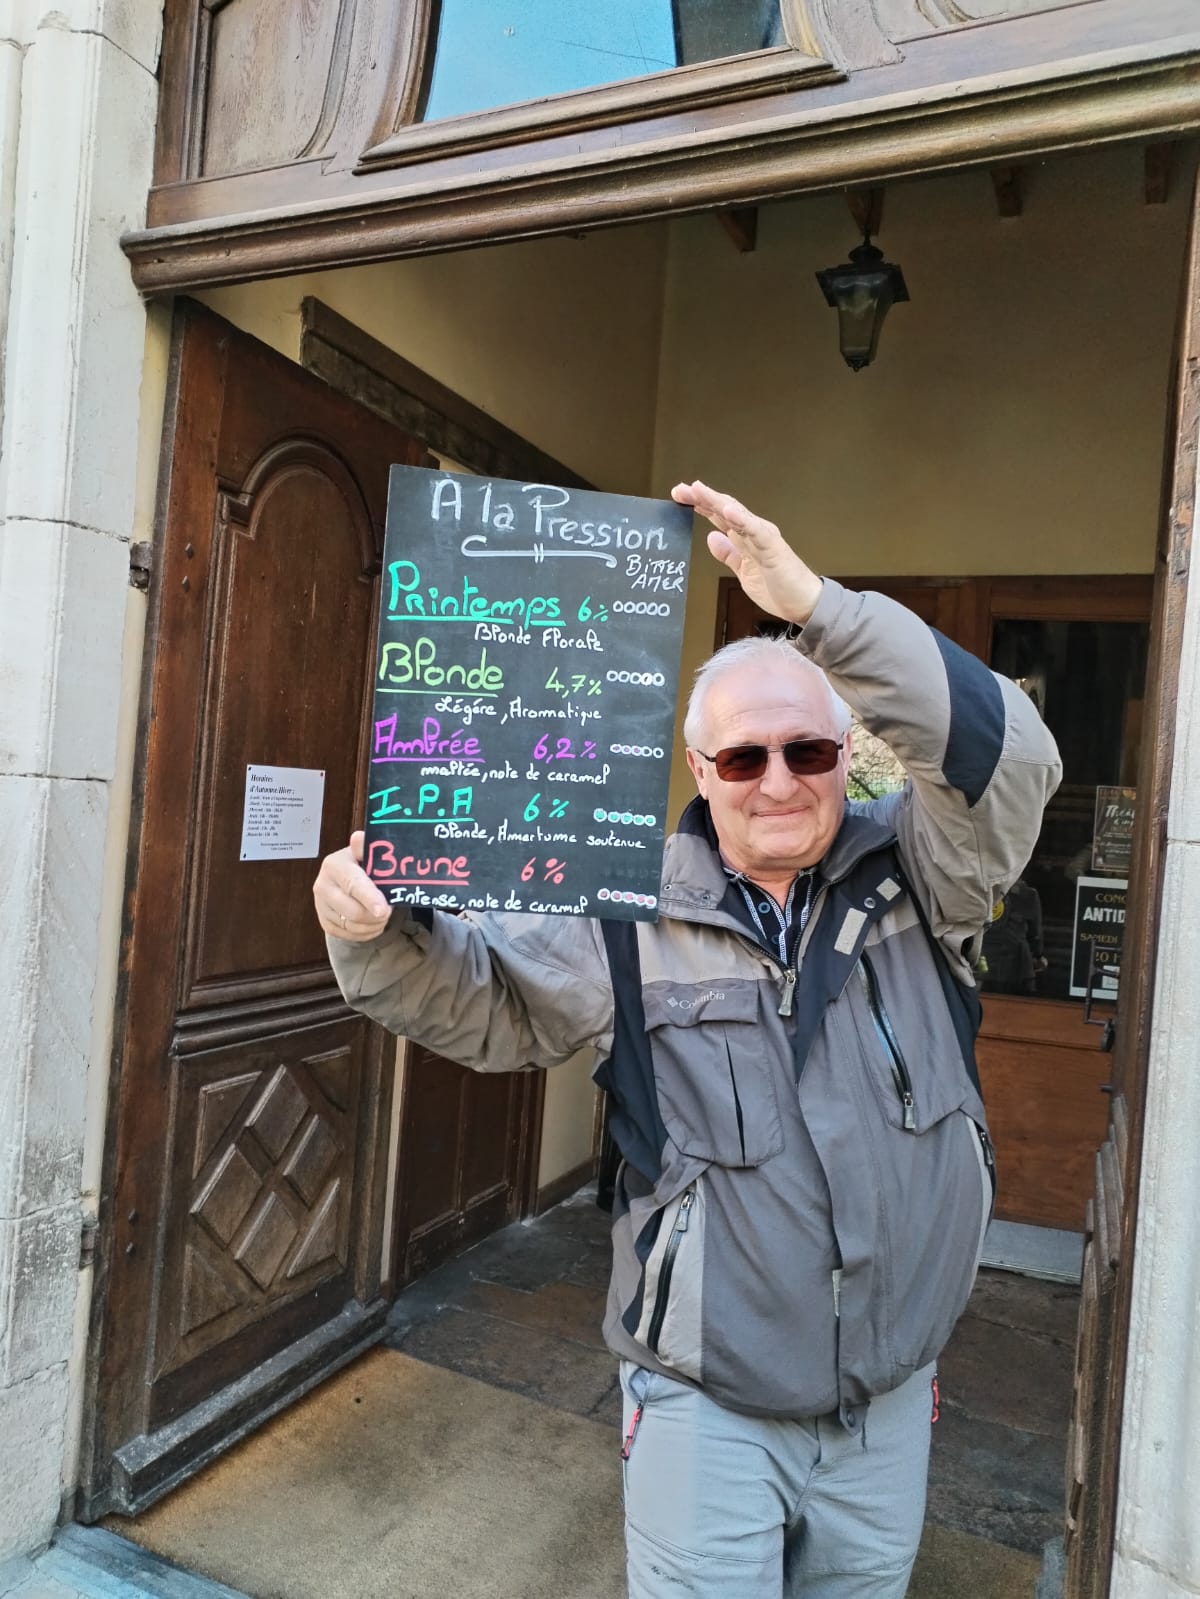 À la Pression
BITTER
AMER
Printemps 6%
Blonde Florale
Blonde 4,7%
Légére, Aromatique
Ambrée 6,2%
maltée, note de caramel
I.P.A 6%
Blonde, Amertume soutenue
Brune 6%
Intense, note de caramel
Horaires
d'Automne/Hiver :
Columbia
CONC
ANTID
SAMEDI
20 H